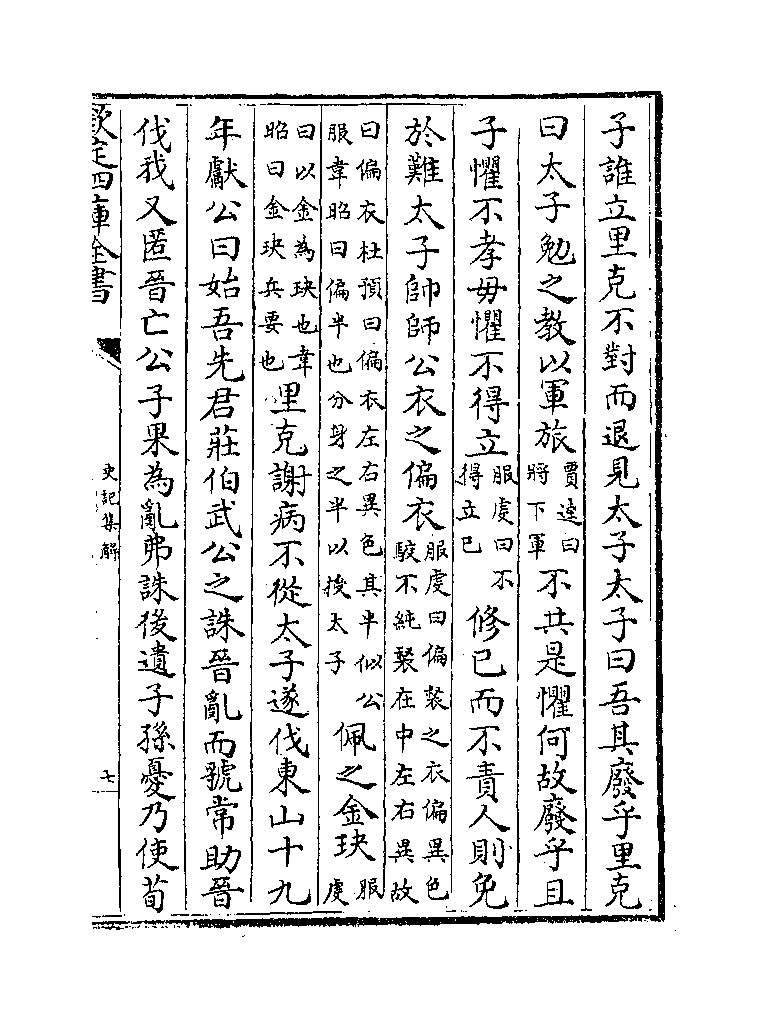 子誰立里克不對而退見太子太子曰吾其廢乎里克
曰太子勉之教以軍旅賈逵曰將下軍不共是懼何故廢乎且
子懼不孝毋懼不得立服虔曰不得立己修己而不責人則免
於難太子帥師公衣之偏衣服虔曰偏裻之衣偏異色駮不純裻在中左右異故
曰偏衣杜預曰偏衣左右異色其半似公服韋昭曰偏半也分身之半以授太子佩之金玦服虔
曰以金為玦也韋昭曰金玦兵要也里克謝病不從太子遂伐東山十九
年獻公曰始吾先君莊伯武公之誅晉亂而虢常助晉
伐我又匿晉亡公子果為亂弗誅後遺子孫憂乃使荀
欽定四庫全書
史記集解
七